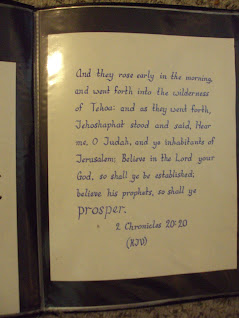 And they rose early in the morning,
and went forth into the wilderness
of Tekoa: and as they went forth,
Jehoshaphat stood and said, Hear
me, O Judah, and ye inhabitants of
Jerusalem; Believe in the Lord your
God, so shall ye be established;
believe his prophets, so shall ye
prosper.
2 Chronicles 20:20
(KJV)